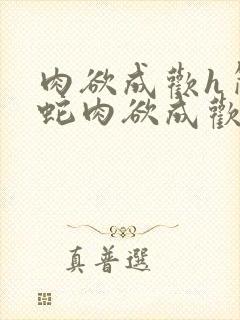 肉欲成歡h
蛇肉欲成歡
真普選